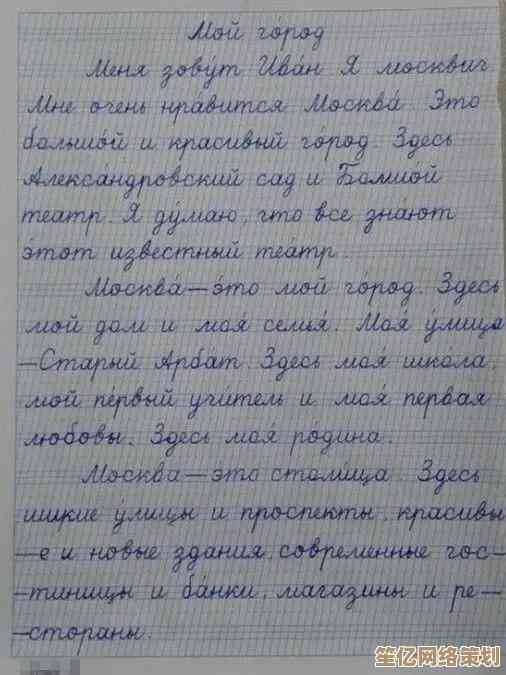 Мой го́род
Меня зову́т Ива́н Я москвич
Мне очень нра́вится Москва́. Это
большо́й и краси́вый го́род. Здесь
Алекса́ндровский сад и Большой
теа́тр. Я ду́маю, что все зна́ют
э́тот изве́стный теа́тр.
Москва́ — э́то мой го́род. Здесь
мой дом и моя́ семья́. Моя́ у́лица
—Ста́рый Арба́т. Здесь моя́ шко́ла,
мой пе́рвый учи́тель и моя́ первая
любовы. Здесь моя́ ро́дина.
Москва́ — э́то столи́ца. Здесь
шикие у́лицы и проспе́кты, краси́вы
—е и но́вые зда́ния, совреме́нные гос—
—тиницы и ба́нки, магази́ны и ре—
—стора́ны.
笙亿网络策划